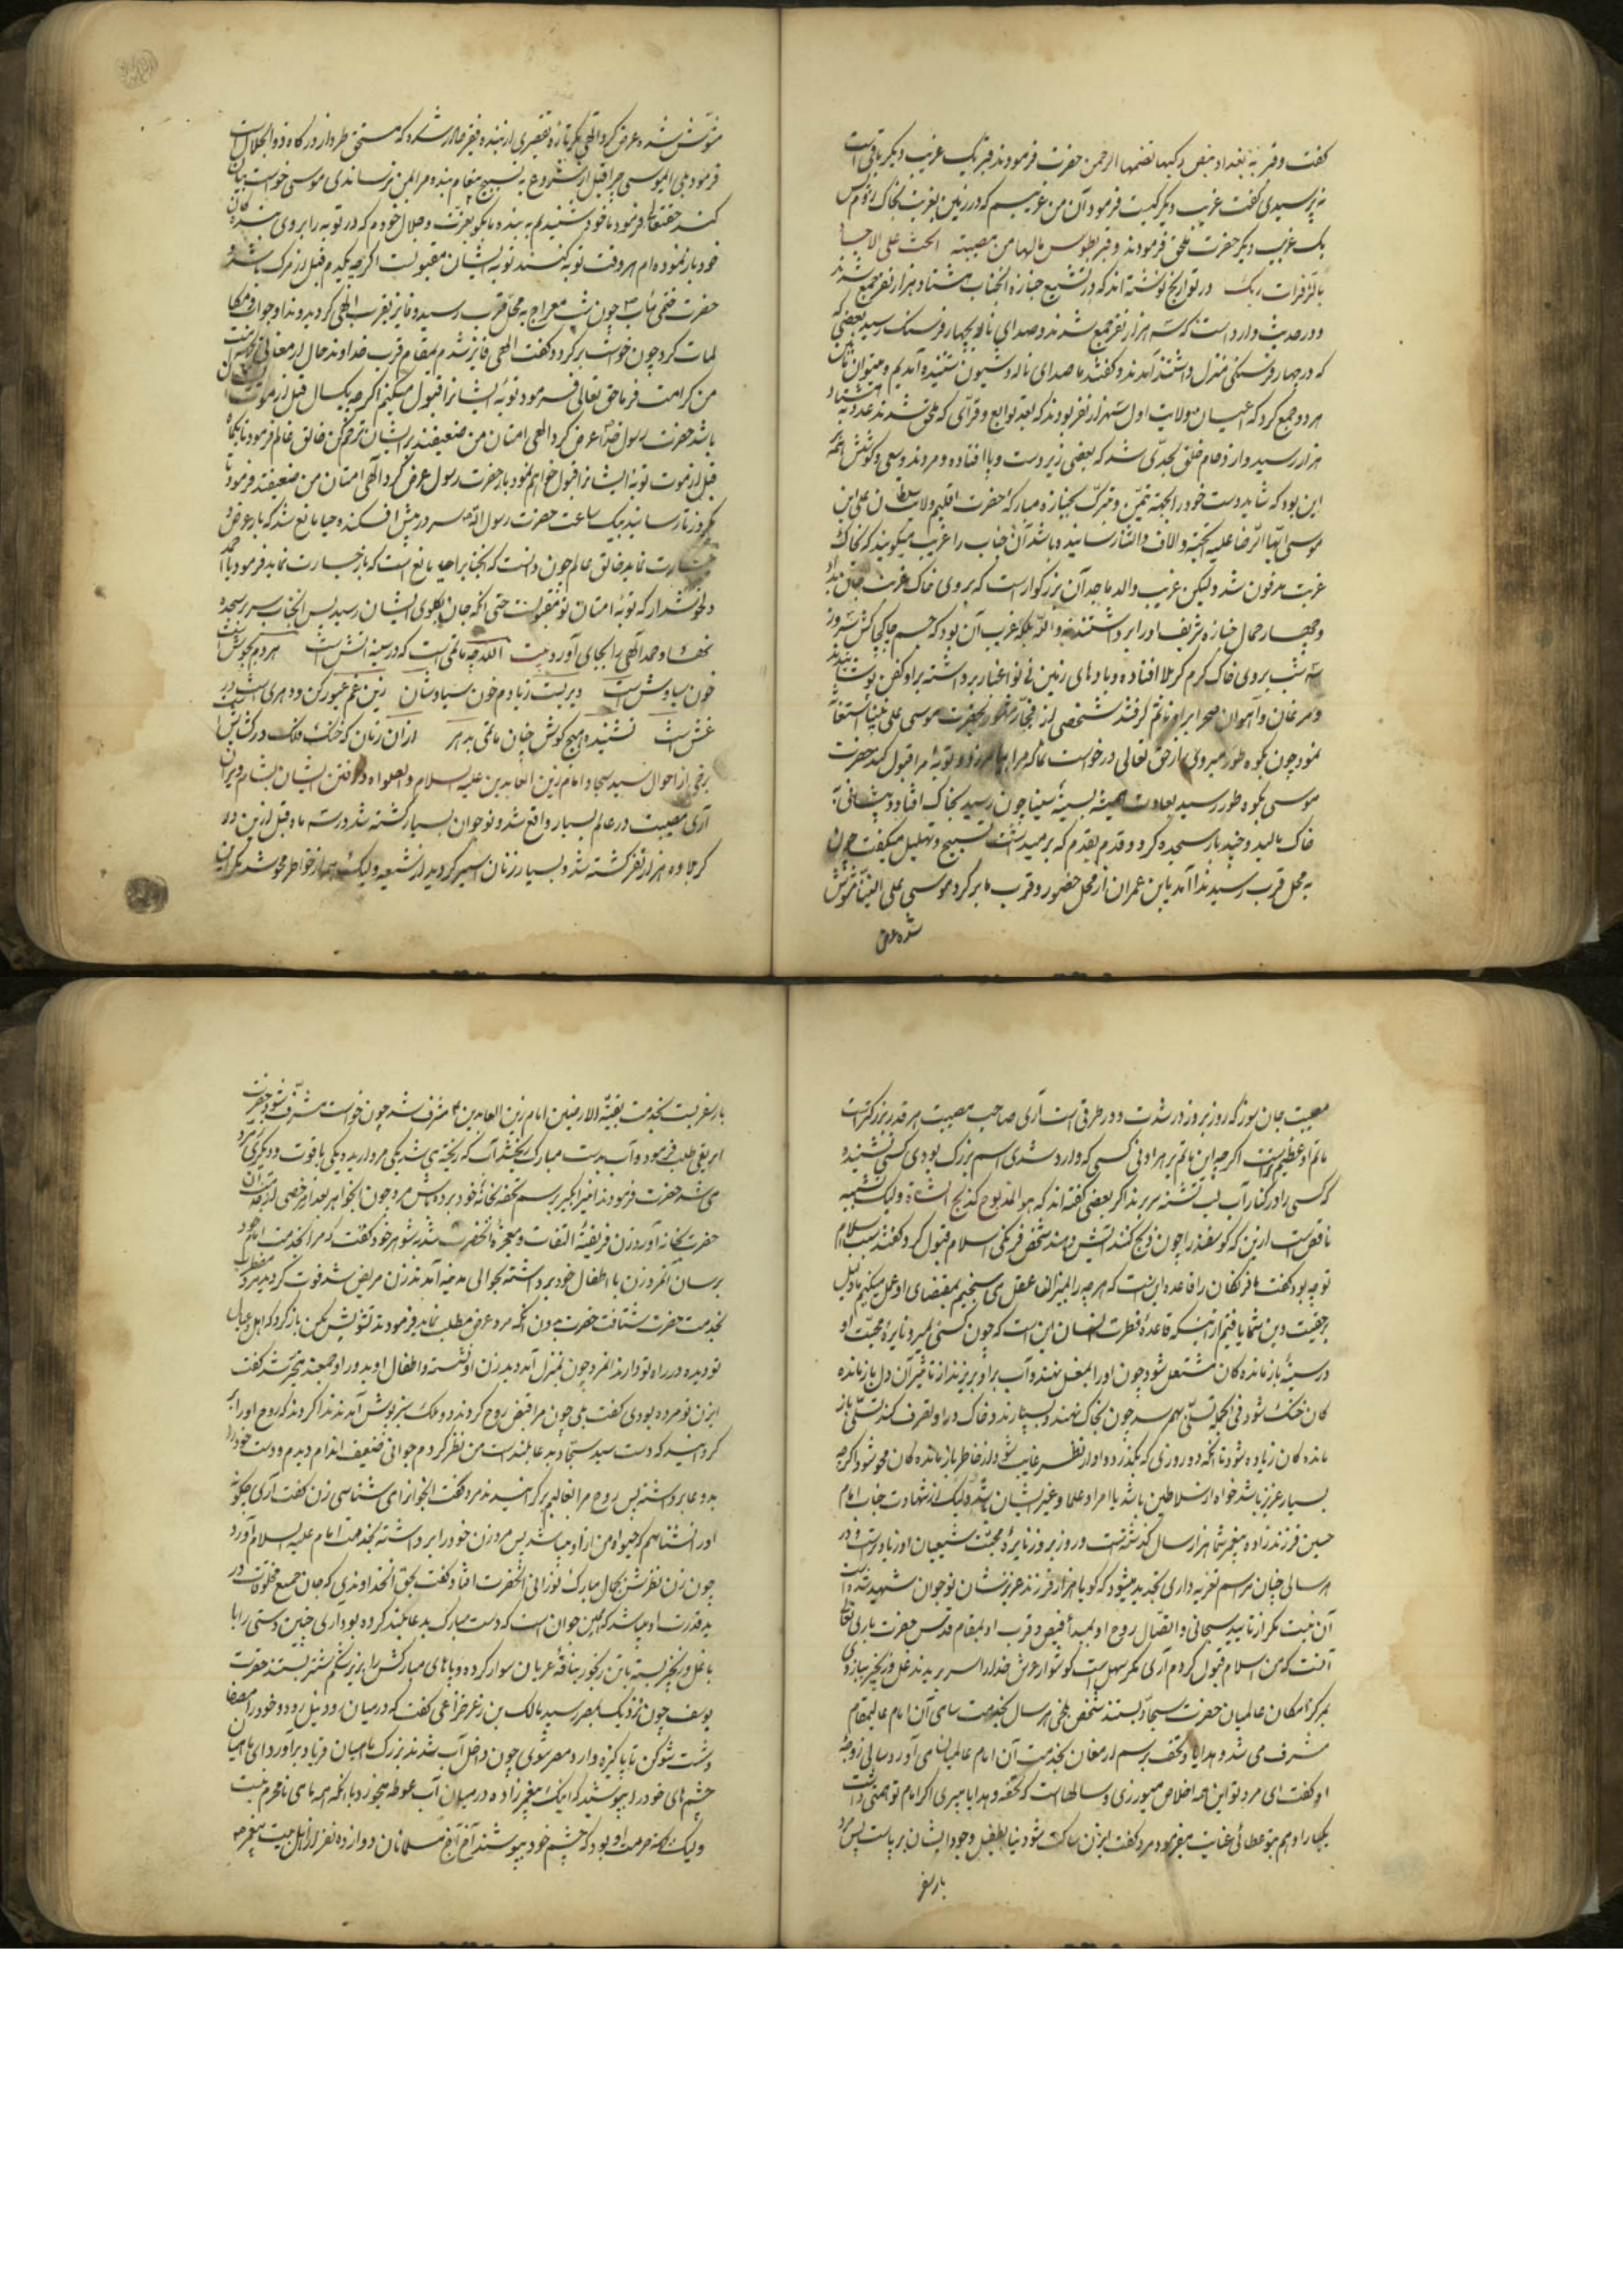 گفت و قبر ببغداد لنفس زکیه تضمنها الرحمن حضرت فرمودند قبر یک غریب دیگر باقیست
نپرسیدی گفت غریب دیگر کیست فرمود آن من غریبم که در زمین بغربت بخاک
یک غریب دیگر حضرت ملحق فرمودند و قبر بطوس یا لها من مصیبة الحت علی الاحشاء
بالزفرات در تواریخ نوشته‌اند که در تشییع جنازه آنجناب هشتاد هزار نفر جمع شدند
و در حدیث وارد است که سه هزار نفر جمع شدند و صدای ناله بچهار فرسنگ رسید بعضی
که در چهار فرسنگی منزل داشتند آمدند و گفتند ما صدای ناله و شیون شنیده آمدیم و میتوان
هر دو جمع کرد که اول سه هزار نفر بودند که بعد توابع و قرائی که ملحق شدند عدد به
هزار رسید و ازدحام خلق بحدی شد که بعضی زیر دست و پا افتاده و مردند و سعی و کوشش همه
این بود که شاید دست خود را بجهة تیمن و تبرک بجنازه مبارکه حضرت اقلیم ولایت سلطان علی ابن
موسی الرضا علیه التحیة و الثنا رسانیده باشد آن جناب را غریب میگویند که بخاک
غربت مدفون شد ولیکن غریب والد ماجد آن بزرگوار است که بروی خاک غربت جان داد
و چهار حمال جنازه شریف او را برداشتند والله بلکه غریب آن بود که جسم چاک چاکش سه روز
سه شب بروی خاک گرم کربلا افتاده و بادهای زمین نینوا غبار برداشته بر او کفن
و مرغان و آهوان صحرا بر او ماتم گرفتند شخصی از فجار بحضرت موسی علی نبینا استغاثه
نمود چون بکوه طور میروی از حق تعالی درخواست نما که مرا بیامرزد و توبه مرا قبول کند حضرت
موسی بکوه طور رسید بعادت همیشه بسینا چون رسید بخاک افتاد و پیشانی
خاک مالید و چند بار سجده کرد و قدم بقدم که برمیداشت تسبیح و تهلیل میگفت چون
به محل قرب رسید ندا آمد یا ابن عمران از محل حضور و قرب ما برگرد موسی مشوش
شده عرض
مشوش شده عرض کرد الهی مگر تازه تقصیری از بنده فقیر صادر شده که مستحق طرد از درگاه ذوالجلال است
فرمود بلی یا موسی چرا قبل از شروع به تسبیح پیغام بنده مرا بمن نرساندی موسی خواست بیان
کند حق تعالی فرمود ما خود شنیدیم به بنده ما بگو بعزت و جلال خودم که در توبه را بروی بندگان
خود باز نموده‌ام هر وقت توبه کنند توبه ایشان مقبول است اگر چه یکدم قبل از مرگ باشد و
حضرت ختمی مآب چون شب معراج به محل قرب رسید و فایز بقرب الهی گردید
چون خواست برگردد گفت الهی فایز شدم بمقام قرب خداوند حال ارمغانی
من کرامت فرما حق تعالی فرمود توبه ایشان را قبول میکنم اگر چه یکسال قبل از موت
باشد حضرت رسول خدا عرض کرد الهی امتان من ضعیفند بر ایشان ترحم کن خالق عالم فرمود یکماه
قبل از موت توبه ایشان را قبول خواهم نمود باز حضرت رسول عرض کرد الهی امتان من ضعیفند فرمود تا
یکروز تا رسانید بیک ساعت حضرت رسول الله سر در پیش افکنده حیا مانع شد که باز عرض و
جسارت نماید خالق عالم چون دانست که آنجناب را حیا مانع است که باز جسارت نماید فرمود یا احمد
دلخوش دار که توبه امتان تو مقبول است حتی آنکه جان بگلوی ایشان رسید پس آنجناب سر بسجده
نهاد و حمد الهی را بجای آورد بیت الله چه ماتمی است که در سینه آتش است هر دم بجوش
خون سیاوش است دیریست زیاد دم خون سیاوشان زین غم عبور کن
غش است نشنیده هیچ گوش چنان ماتمی بدهر از آن زمان که جنگ فلک در کشاکش است
برخی از احوال سید سجاد امام زین العابدین علیه السلام و بعلاوه در رفتن ایشان بشام ویران
آری مصیبت در عالم بسیار واقع شد و نوجوان بسیار کشته شد در سه ماه قبل ازین در
کربلا ده هزار نفر کشته شد و بسیار زنان اسیر گردید از شیعه ولیک همه از خواطر محو شد مگر این
مصیبت جان سوز که روز بروز در شدت و در طرقی است آری صاحب مصیبت هر قدر بزرگتر است
ماتم او عظیم‌تر است اگر چه این ماتم بر هر ادنی کسی که وارد شدی اسم بزرگ بودی کسی نشنیده
که کسی را در کنار آب لب تشنه سر ببرند اگر بعضی گفته‌اند که هو المذبوح کذبح الشاة ولیک تشبیه
ناقص است از این که گوسفند را چون ذبح کنند آبش دهند شخص فرنگی اسلام قبول کرد گفتند سبب اسلام
تو چه بود گفت ما فرنگیان را قاعده این است که هر چه را بمیزان عقل می‌سنجیم بمقتضای او عمل میکنیم ما دلیل
حقیت دین شما یافتیم از اینکه قاعده فطرت انسان این است که چون کسی بمیرد نایره محبت او
در سینه بازماندگان مشتعل شود چون او را بمغسل نهند و آب بر او بریزند از تاثیر آن دل بازمانده
گان خنک شود فی الجمله تسلی بهم رسد چون بخاک نهند و بسپارند و خاک در او تصرف کند تسلی باز
ماندگان زیاده شود تا آنکه دو روزی که بگذرد و او از نظر غایب شود از خاطر بازماندگان محو شود اگر چه
بسیار عزیز باشد خواه از سلاطین باشد یا امرا و علما و غیر ایشان باشد ولیک از شهادت جناب امام
حسین فرزندزاده پیغمبر شما هزار سال گذشته است و روز بروز نایره محبت شیعیان او زیادتر است و در
هر سالی چنان مراسم تعزیه‌داری تجدید میشود که گویا هزار فرزند عزیز ایشان نوجوان شهید شده است
آن نیست مگر از تایید سبحانی و اتصال روح او بمبدأ فیض و قرب او بمقام قدس حضرت باری تعالی
آنست که من اسلام قبول کردم آری مگر سهل است گوشوار عرش خدا را سر ببرند غل و زنجیر ببازوی
مرکز امکان عالمیان حضرت سجاد بستند شخص بلخی هر سال بخدمت سامی آن امام عالیمقام
مشرف می شد و هدایا و تحف برسم ارمغان بخدمت آن امام عالمیان می آورد سالی زوجه
او گفت ای مرد تو این همه اخلاص میورزی و سالهاست که تحفه و هدایا میبری اگر امام تو همتی داشت
یکبار او هم بتو عطائی عنایت میفرمود مرد گفت ای زن ساکت شو دنیا بطفیل وجود ایشان برپاست پس مرد
بار سفر
بار سفر بست بخدمت بقیة الارضین امام زین العابدین مشرف شد چون خواست مشرف شود حضرت
ابریقی طلب فرمود و آب بدست مبارک ریخت آب که ریخته می شد یکی مروارید و یکی یاقوت و دیگری زمرد
می شد حضرت فرمودند اینرا بگیر برسم تحفه بخانه خود برده باش مرد چون آنجواهر بعد از مرخصی از خدمت آن
حضرت بخانه آورد زن فریفته التفات و معجزه آنحضرت شد بشوهر خود گفت که مرا بخدمت امام خود
برسان آنمرد زن با اطفال خود برداشته بحوالی مدینه آمدند زن مریض شد فوت گردید مرد مضطرب
بخدمت حضرت شتافت حضرت بدون آنکه مرد عرض مطلب نماید فرمودند تشویش مکن بازگرد که اهل و عیال
تو دیده در راه تو دارند آنمرد چون بمنزل آمد دید زن او نشسته و اطفال او بدور او جمعند متحیر شد گفت
ای زن تو مرده بودی گفت بلی چون مرا قبض روح کردند و دو ملک سبزپوش آمدند ندا کردند که روح او را بر
گردانید که دست سید سجاد بدعا بلند است من نظر کردم جوانی ضعیف اندام دیدم و دست خود را
بدعا برداشته پس روح مرا بقالبم برگردانیدند مرد گفت آنجوان را می شناسی زن گفت آری چگونه
او را نشناسم که حیوة من از او میباشد پس مرد زن خود را برداشته بخدمت امام علیه السلام آورد
چون زن نظرش بجمال مبارک نورانی آنحضرت افتاد گفت بحق آنخداوندی که جان جمیع مخلوقات در
ید قدرت او میباشد که همین جوان است که دست مبارک بدعا بلند کرده بود آری چنین دستی را با
با غل و زنجیر بسته با تن رنجور بناقه عریان سوار کرده و پاهای مبارکش را بر زیر شکم شتر بستند حضرت
یوسف چون نزدیک بمصر رسید مالک بن زعر خزاعی گفت که در میان رود نیل رود و خود را مصفا
و شست شو کن تا پاکیزه وارد مصر شوی چون داخل آب شدند بزرگ ماهیان فریاد برآورد ای ماهیان
چشم‌های خود را بپوشید که اینک پیغمبرزاده در میان آب غوطه میخورد با آنکه همه ماهی نامحرم نیست
ولیک آنکه حرمت او بود که چشم خود بپوشند آخ آخ مسلمانان دوازده نفر از اهل بیت پیغمبر